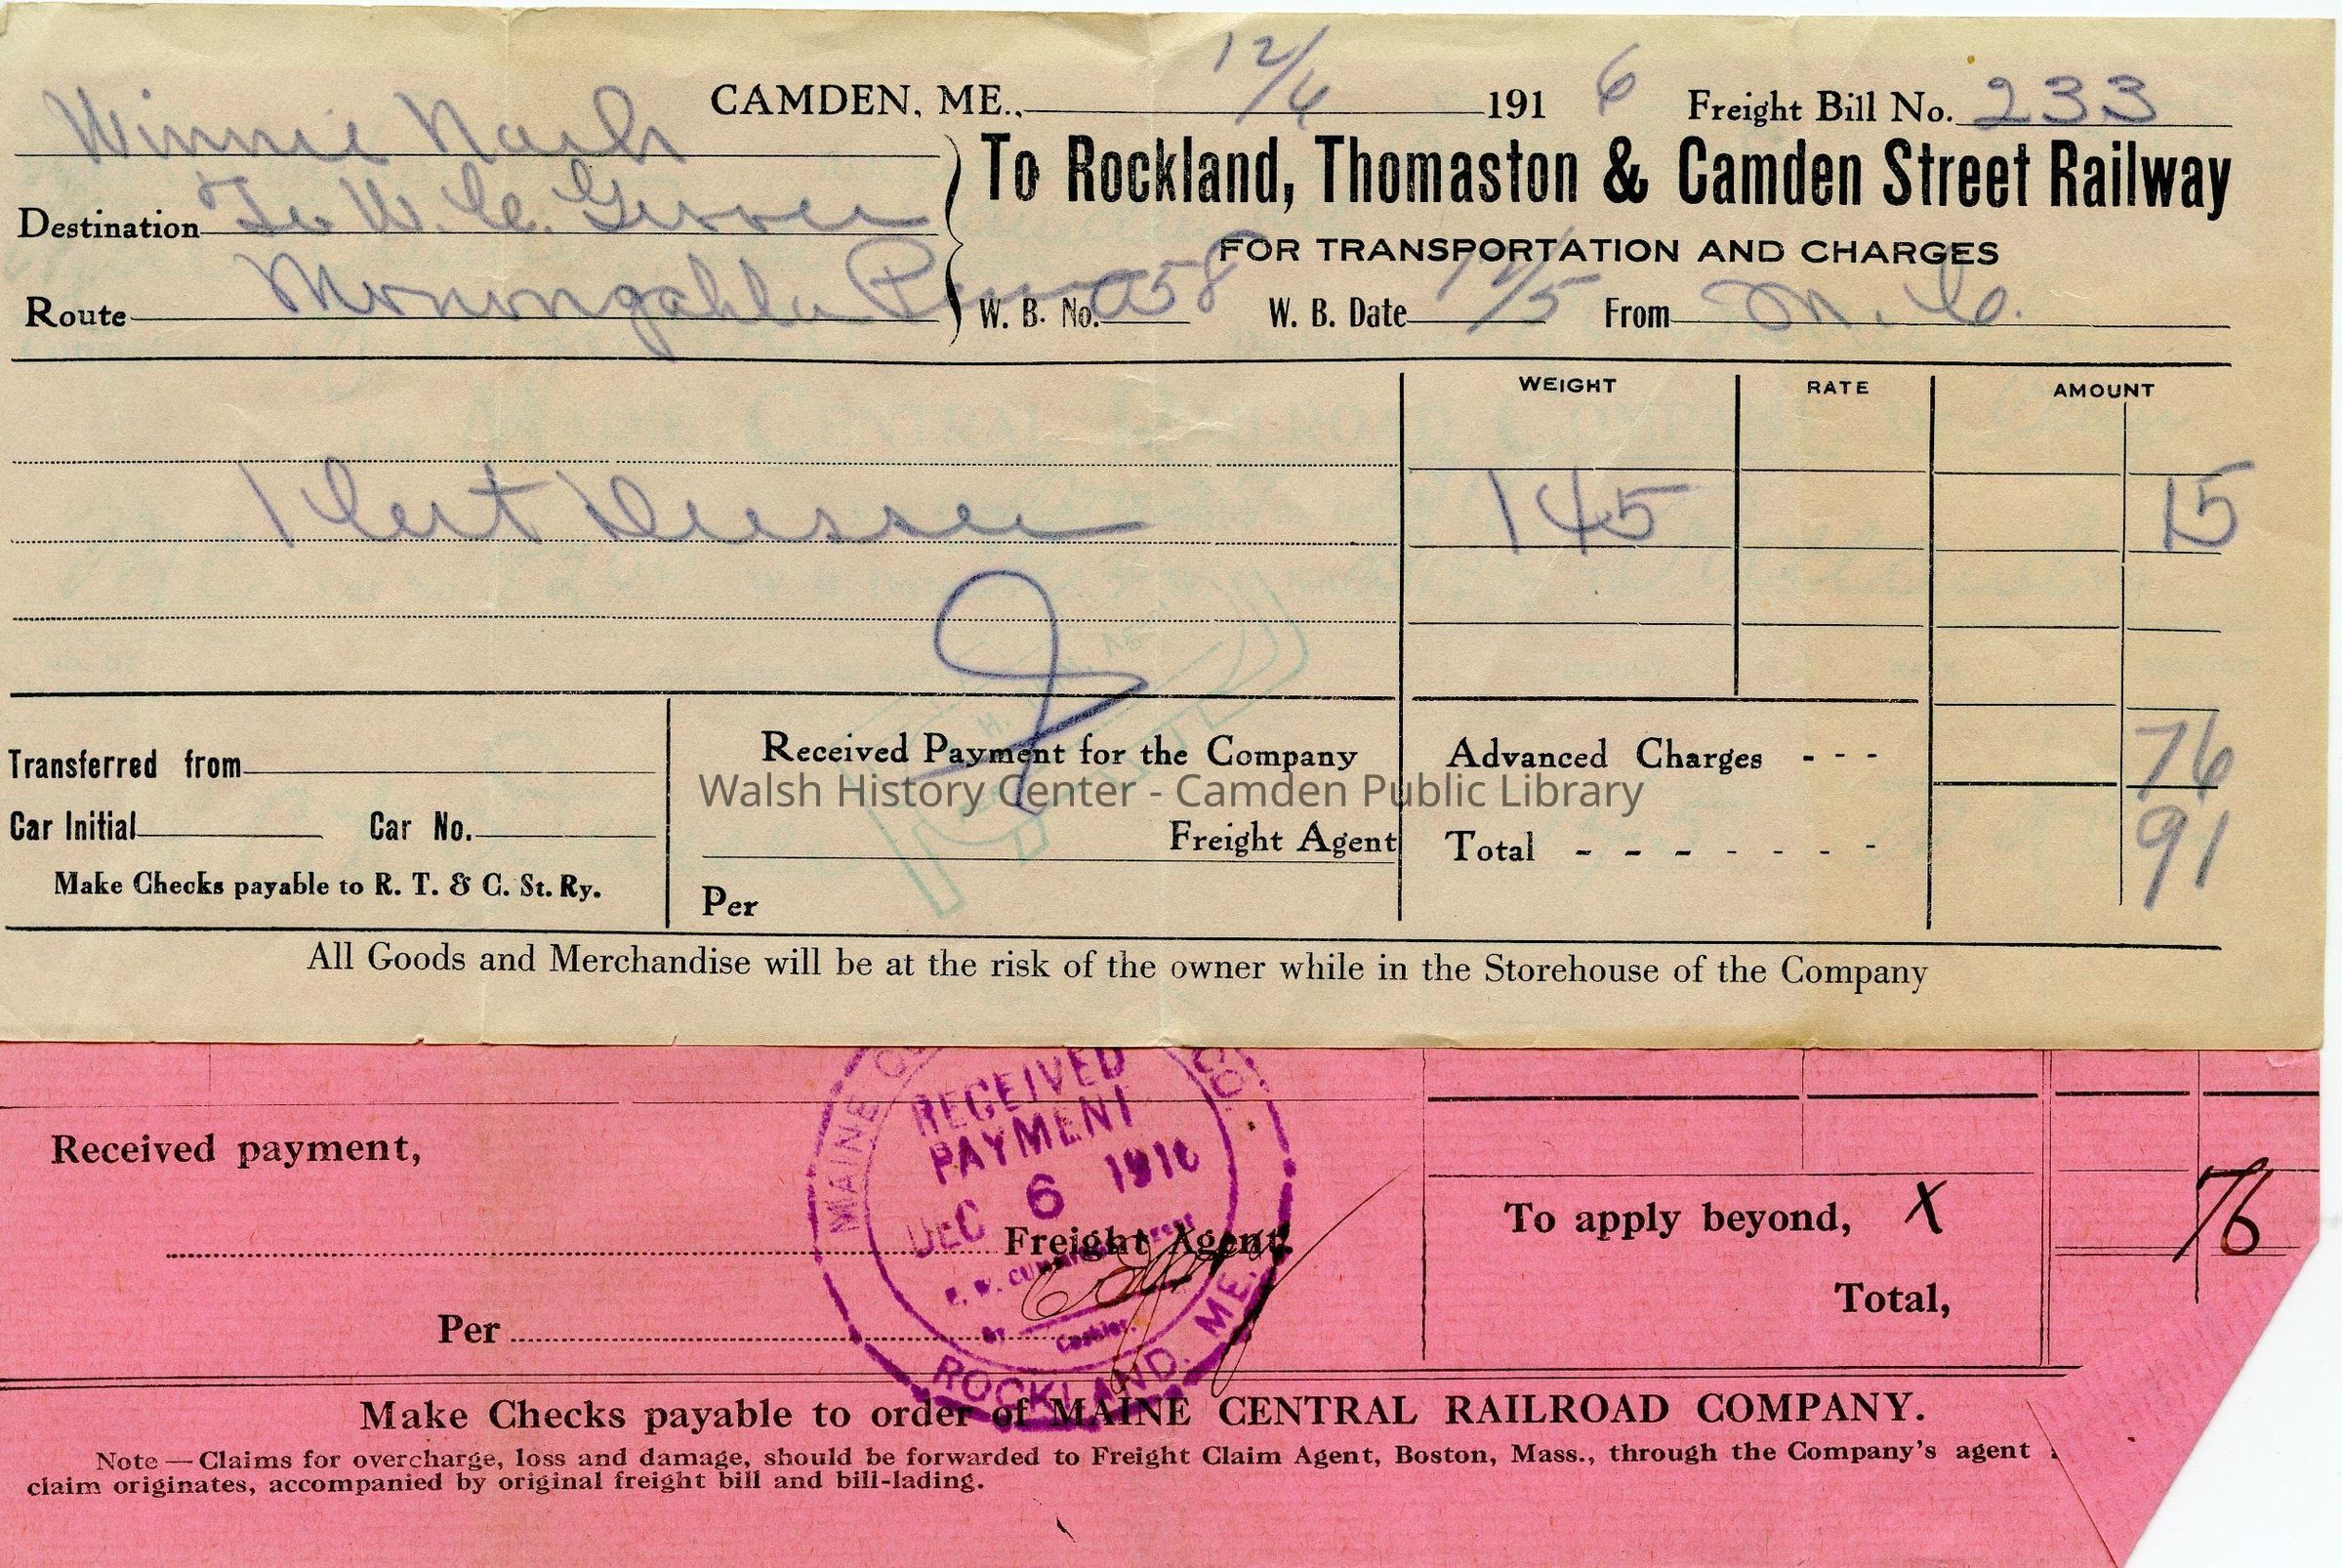 CAMDEN, ME., 12/6 1916 Freight Bill No. 233
Winnie Nash
To Rockland, Thomaston & Camden Street Railway
Destination To W. C. Grover
FOR TRANSPORTATION AND CHARGES
Route Monongahla Penn
W. B. No. 58 W. B. Date 12/5 From M. C.
WEIGHT RATE AMOUNT
1 145 15
Transferred from
Received Payment for the Company
Advanced Charges - - - 76
Walsh History Center - Camden Public Library
Car Initial Car No.
Freight Agent
Total - - - - - - - 91
Make Checks payable to R. T. & C. St. Ry.
Per
All Goods and Merchandise will be at the risk of the owner while in the Storehouse of the Company
MAINE
RECEIVED
PAYMENT
DEC 6 1916
Received payment,
Freight Agent.
To apply beyond, X 76
Cashier.
Total,
Per
ROCKLAND, ME.
Make Checks payable to order of MAINE CENTRAL RAILROAD COMPANY.
Note — Claims for overcharge, loss and damage, should be forwarded to Freight Claim Agent, Boston, Mass., through the Company's agent
claim originates, accompanied by original freight bill and bill-lading.